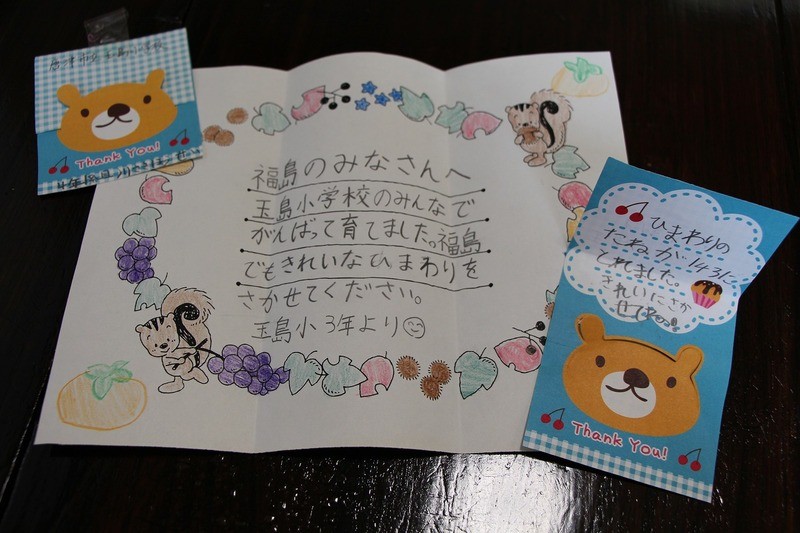 唐津市立玉島小学校
Thank You!
福島のみなさんへ
玉島小学校のみんなで
がんばって育てました。福島
でもきれいなひまわりを
さかせてください。
玉島小3年より
ひまわりの
たねが
とれました。
きれいにさか
せてねっ!
Thank You!